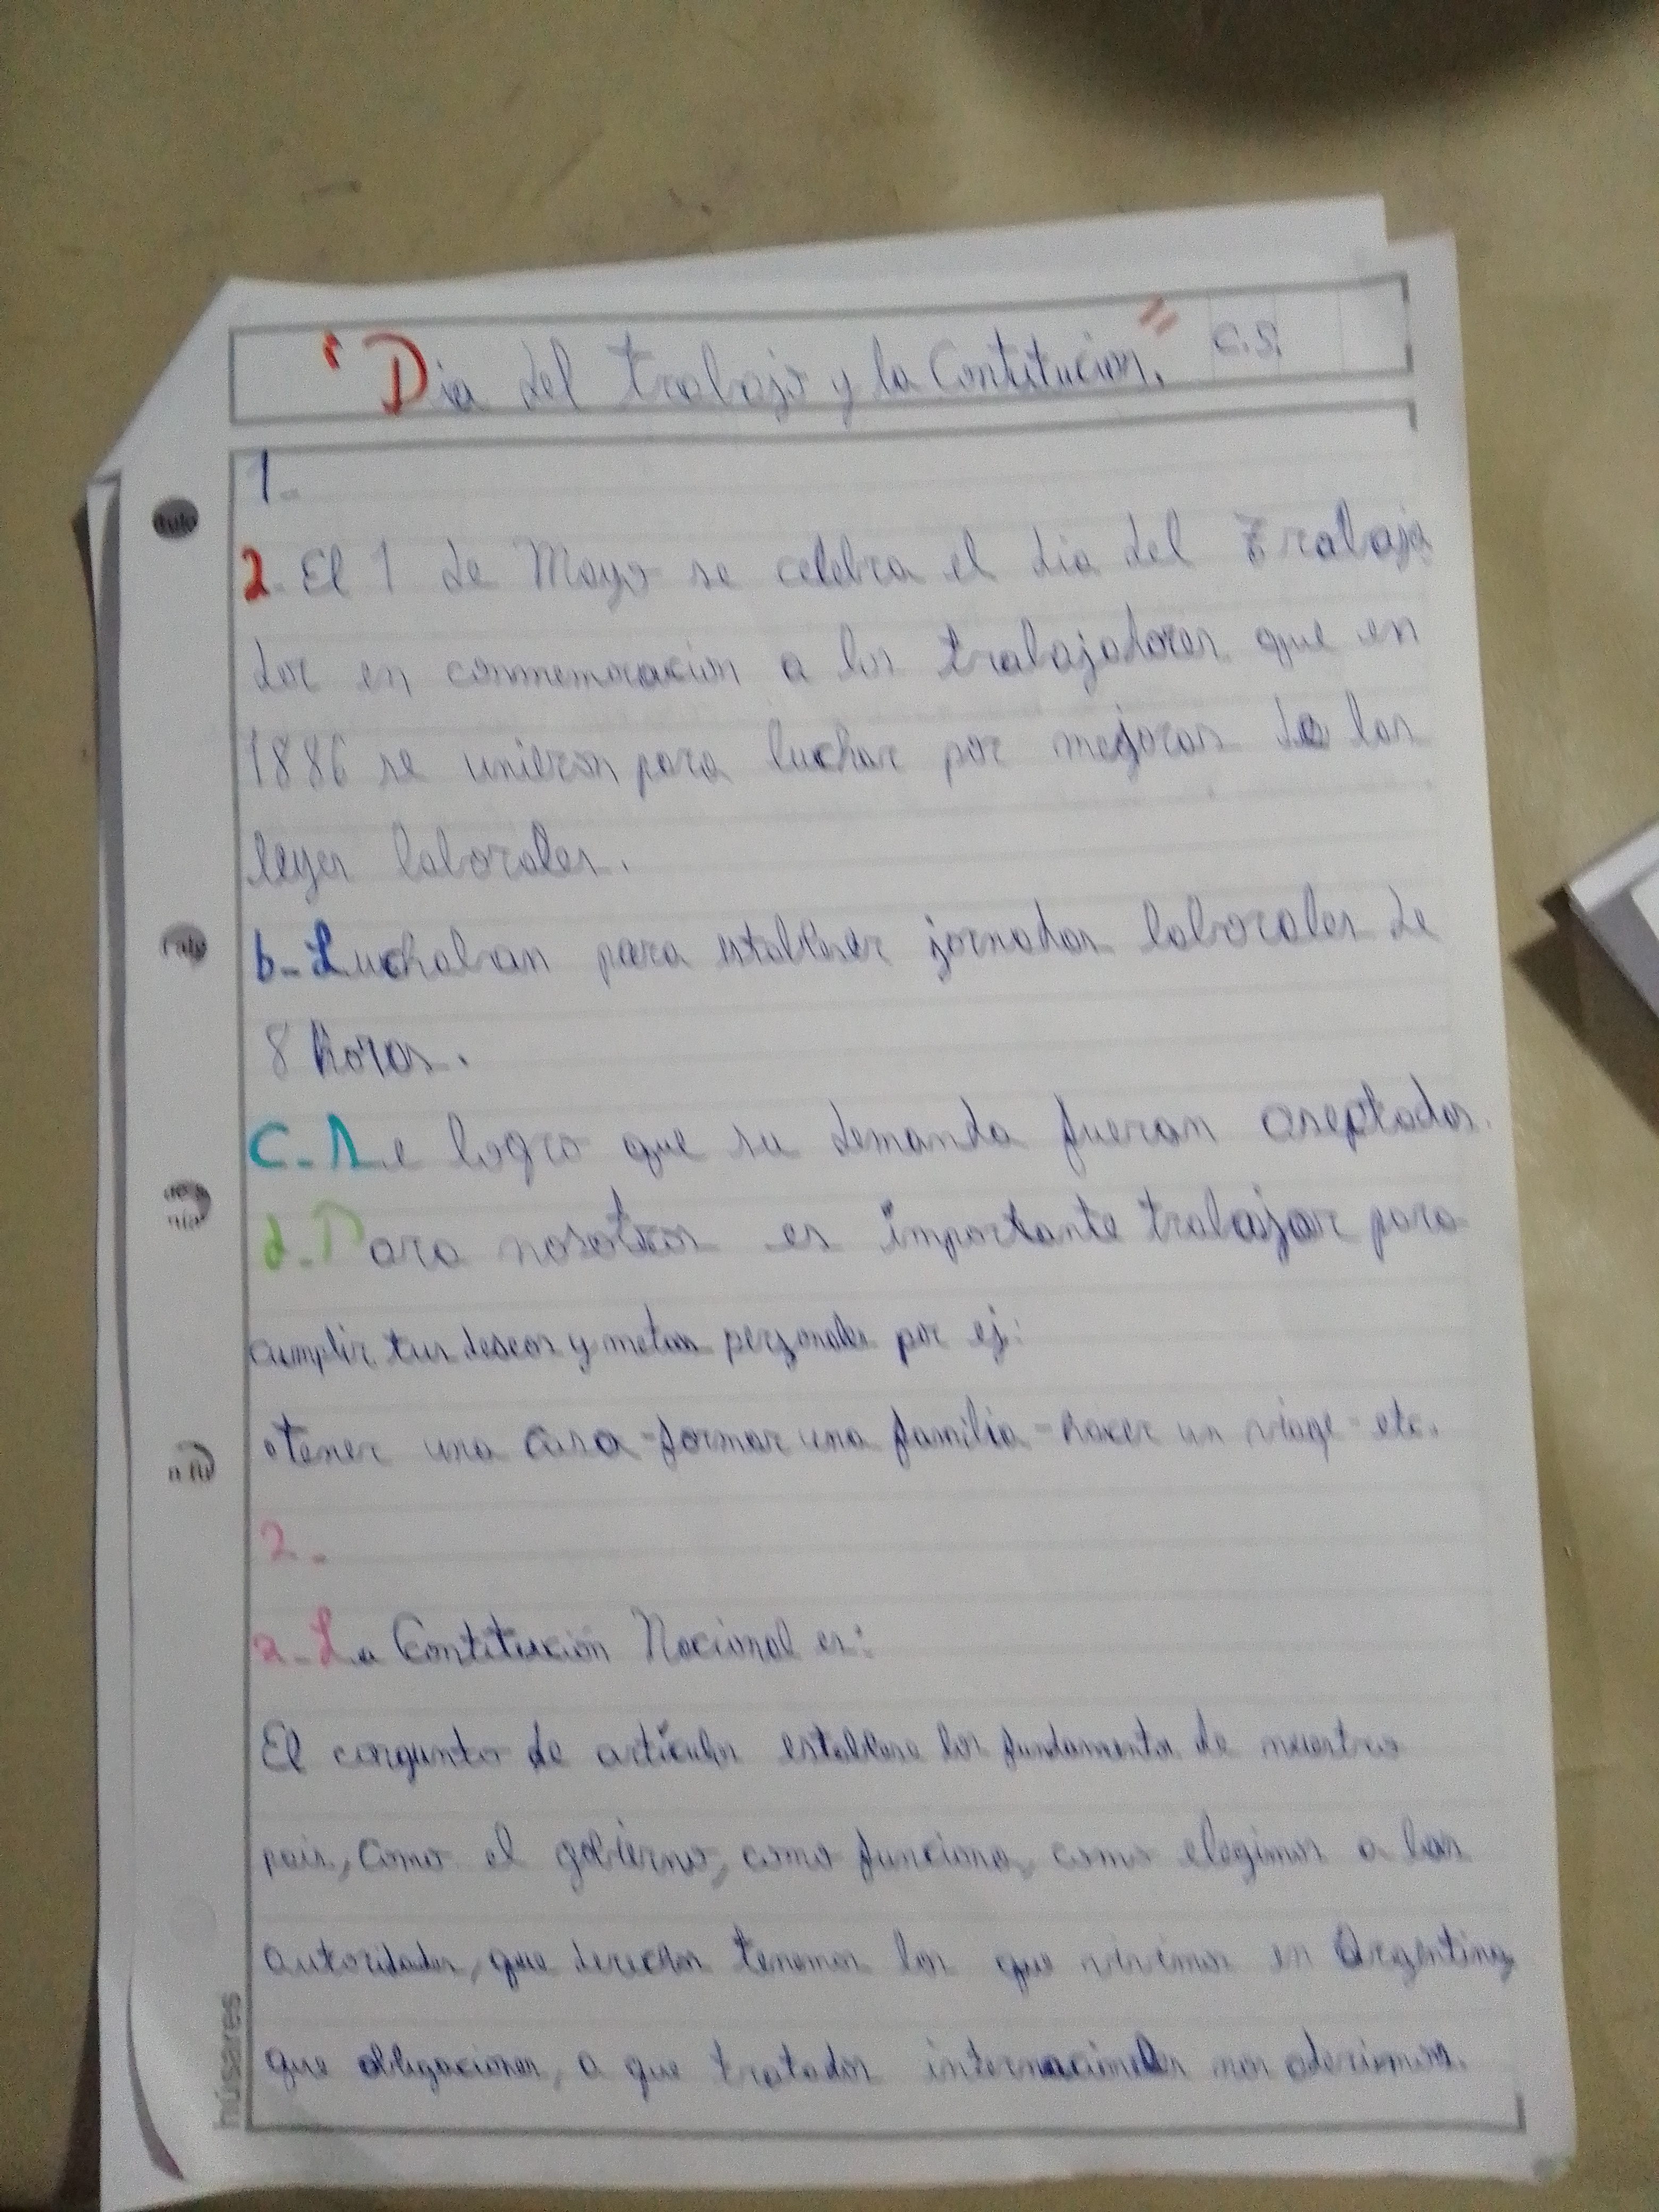 "Dia del trabajo y la Contitucion." C.S.
1-
2- El 1 de Mayo se celebra el dia del Trabaja
dor en conmemoracion a los trabajadores que en
1886 se unieron para luchar por mejoras de las
leyes laborales.
b- Luchaban para estableser jornadas laborales de
8 horas.
C- Se logro que su demanda fueran aseptadas.
d- Para nosotros es importante trabajar para
cumplir tus deseos y metas personales por ej:
•tener una casa -formar una familia -hacer un viage - etc.
2-
a- La Contitución Nacional es:
El congunto de artículos establese los fundamentos de nuestro
pais, como el gobierno, como funciona, como elegimos a las
autoridades, que derechos tenemos los que vivimos en Argentina,
que obligaciones, a que tratados internacionales nos aderimos.
húsares